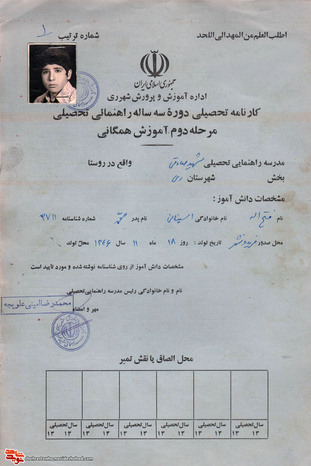 اطلب العلم من المهد الی اللحد
شماره ترتیب ۱
جمهوری اسلامی ایران
اداره آموزش و پرورش شهرری
کارنامه تحصیلی دورهٔ سه ساله راهنمائی تحصیلی
مرحله دوم آموزش همگانی
مدرسه راهنمایی تحصیلی شهید صادقی واقع در روستا
بخش شهرستان ری
مشخصات دانش آموز:
نام فتح اله نام خانوادگی نام پدر محمد شماره شناسنامه ۹۷۱۱
محل صدور فریدونشهر تاریخ تولد: روز ۱۸ ماه ۱۱ سال ۱۳۴۶ محل تولد
مشخصات دانش آموز از روی شناسنامه نوشته شده و مورد تایید است
نام و نام خانوادگی رئیس مدرسه راهنمایی تحصیلی
محمدرضا لیثی علویجه
مهر و امضاء
محل الصاق یا نقش تمبر
سال تحصیلی سال تحصیلی سال تحصیلی سال تحصیلی سال تحصیلی سال تحصیلی
۱۳ ۱۳ ۱۳ ۱۳ ۱۳ ۱۳ ۱۳ ۱۳ ۱۳ ۱۳ ۱۳ ۱۳